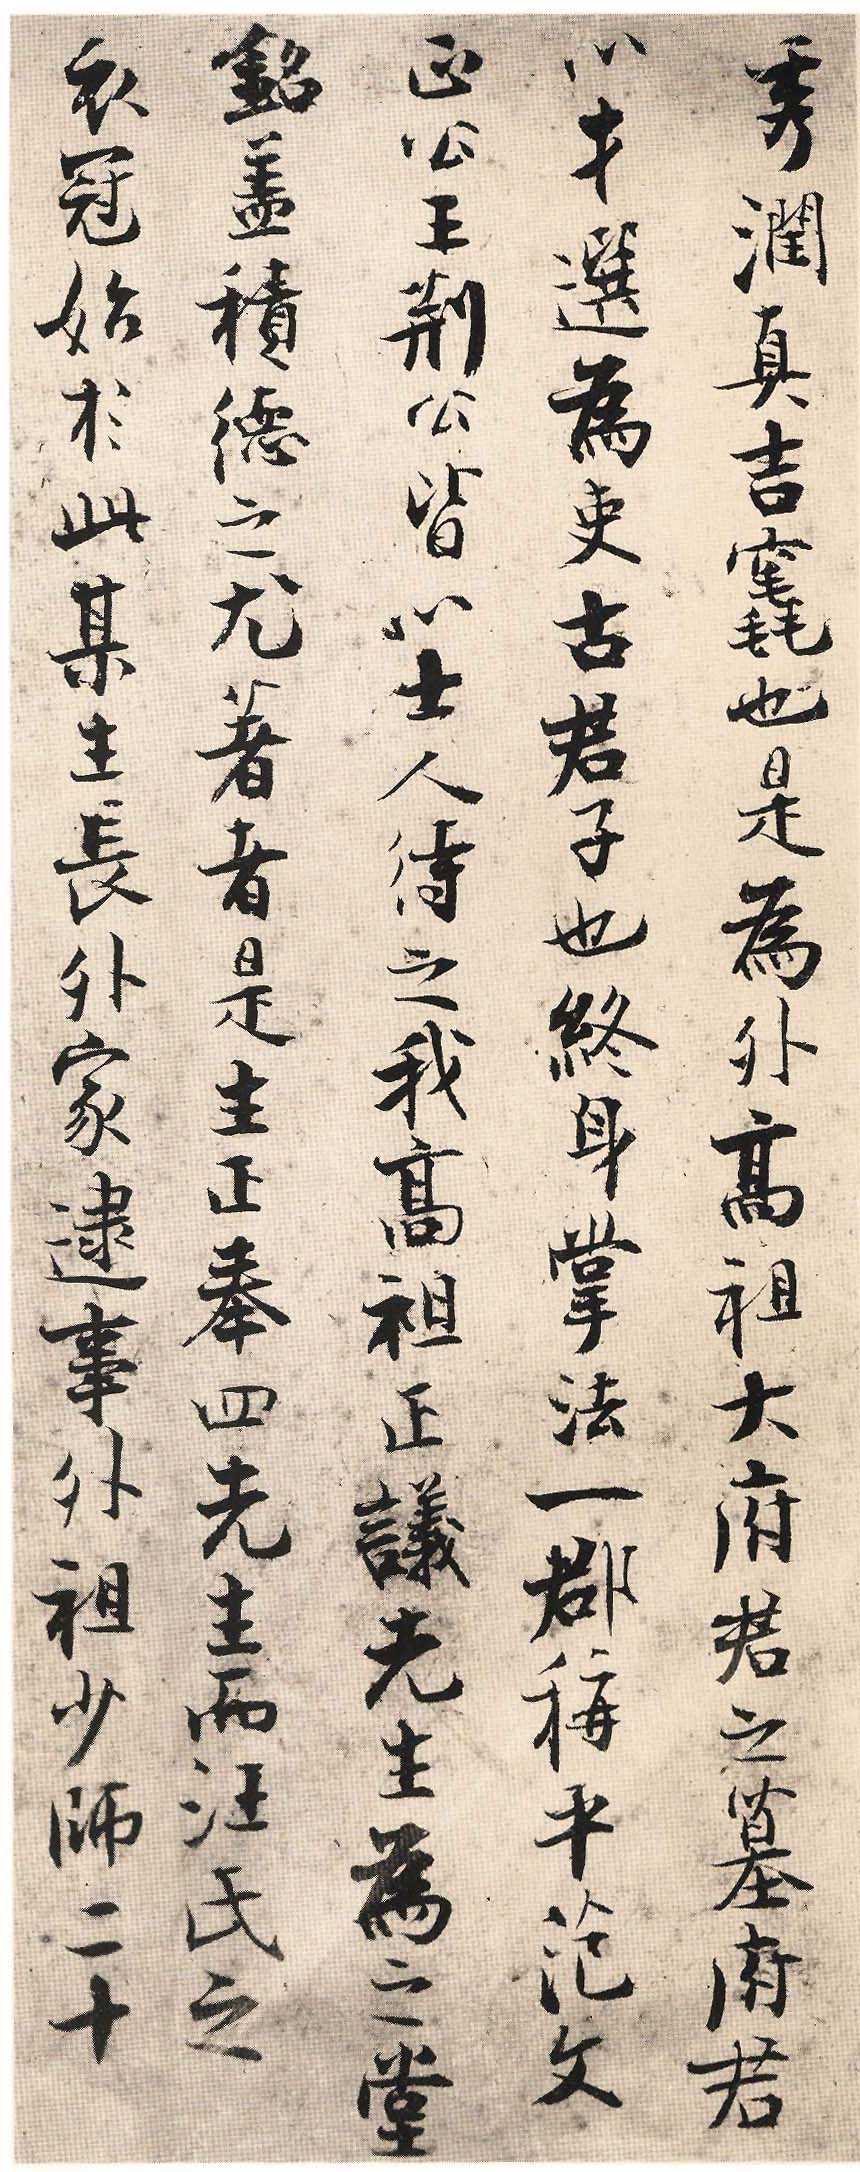 秀潤真吉竁也是為外高祖大府君之墓府君
以才選為吏古君子也終身掌法一郡稱平范文
正公王荆公皆以士人待之我高祖正議先生為之堂
銘盖積德之尤著者是生正奉四先生而汪氏之
衣冠始於此某生長外家逮事外祖少師二十